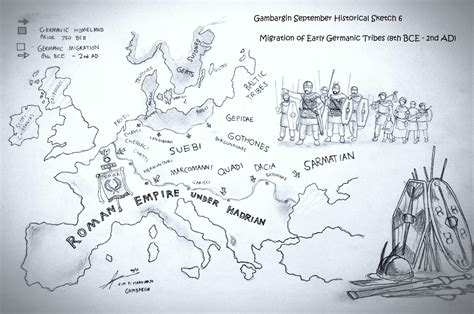 Gambargin September Historical Sketch 6
Migration of Early Germanic Tribes (8th BCE - 2nd AD)
GERMANIC HOMELAND
PRIOR 750 BCE
GERMANIC MIGRATION
8th BCE - 2nd AD
GEATS
BALTIC TRIBES
FRISII
CHERUSCI
CHATTI
SUEBI
GEPIDAE
GOTHONES
BURGUNDIANS
HERMUNDURI
MARCOMANNI
QUADI
DACIA
SARMATIAN
ROMAN EMPIRE UNDER HADRIAN
GAMBARGIN